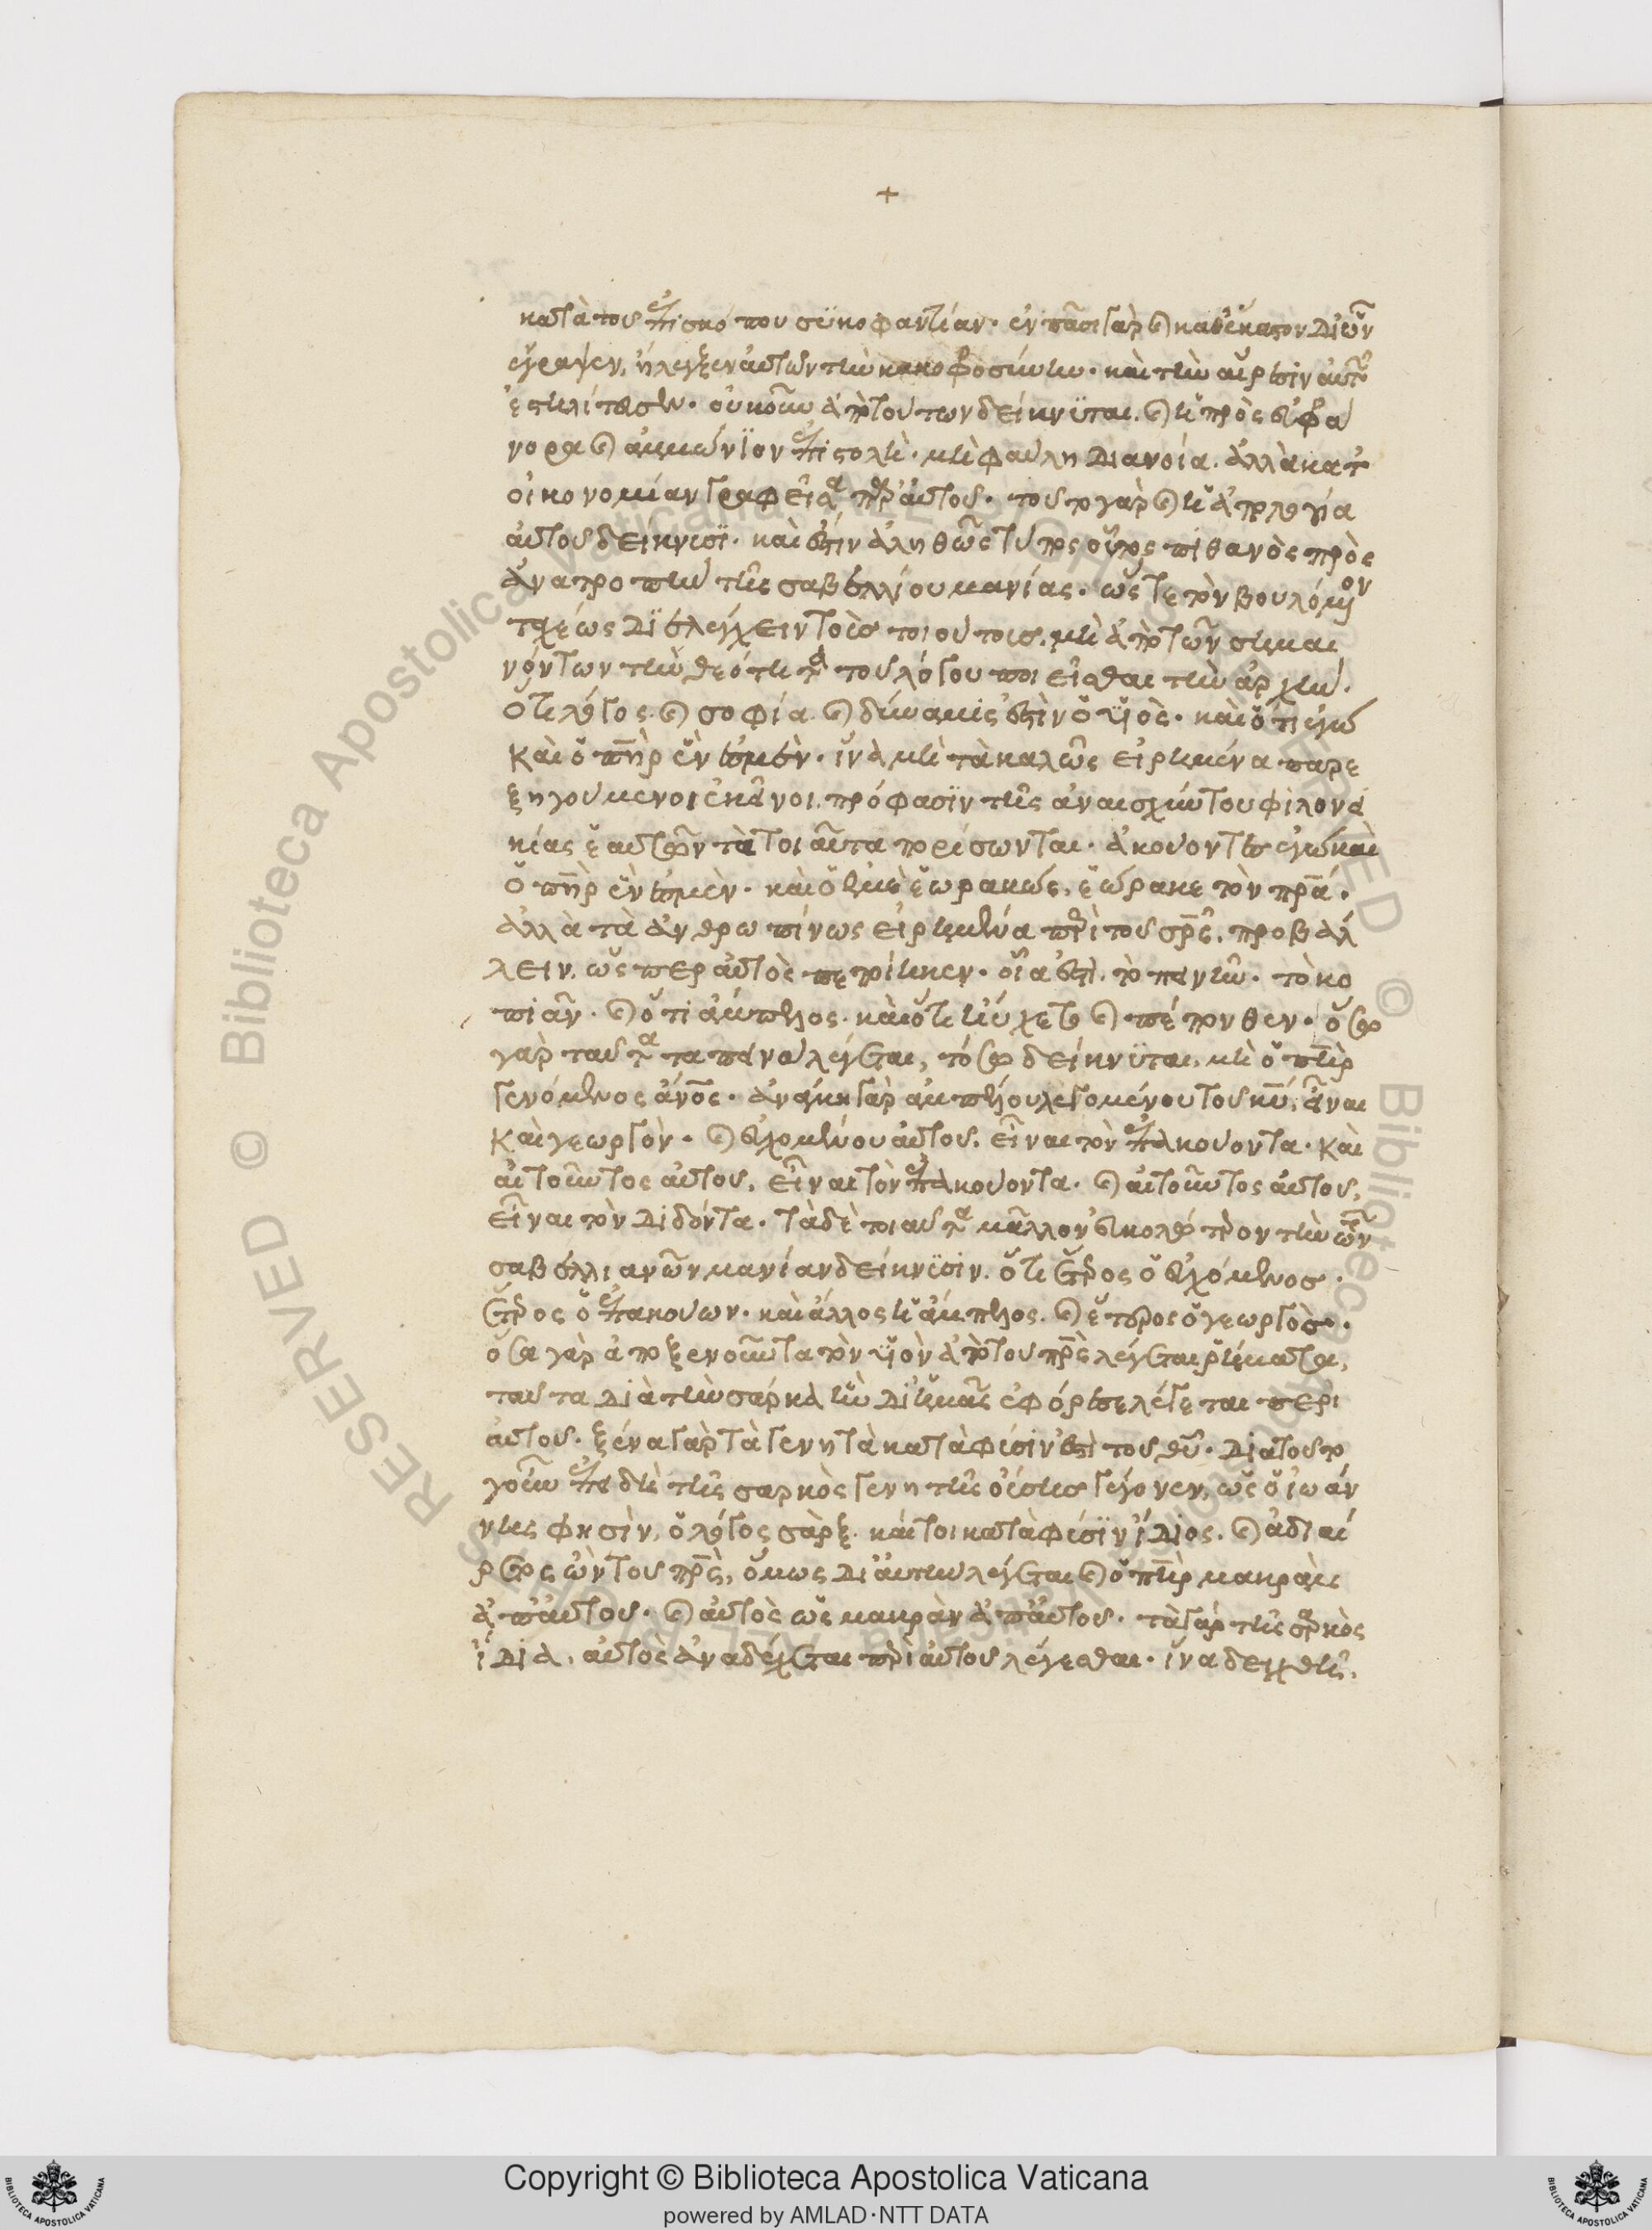 +
κατὰ τοῦ ἐπισκόπου συκοφαντίαν. ἐν πᾶσι γὰρ καὶ καθ' ἕκαστον δι' ὧν
ἔγραψεν, ἤλεγξεν αὐτῶν τὴν κακοφροσύνην. καὶ τὴν αἵρεσιν αὐτῶν
ἐστηλίτευσεν. οὐκοῦν ἀπὸ τούτων δείκνυται, καὶ ἡ πρὸς εὐφρά
νορα καὶ ἀμμώνιον ἐπιστολὴ. μὴ φαύλη διανοία. ἀλλὰ κατ'
οἰκονομίαν γραφεῖσα παρ' αὐτοῦ. τοῦτο γὰρ καὶ ἡ ἀπολογία
αὐτοῦ δείκνυσι. καὶ ἔστιν ἀληθῶς τύπος οὗτος πιθανὸς πρὸς
ἀνατροπὴν τῆς σαβελλίου μανίας. ὥστε τὸν βουλόμενον
ταχέως διελέγχειν τοὺς τοιούτους, μὴ ἀπὸ τῶν σημαι
νόντων τὴν θεότητα τοῦ λόγου ποιεῖσθαι τὴν ἀρχὴν.
ὅτι λόγος καὶ σοφία καὶ δύναμις ἐστὶν ὁ υἱὸς. καὶ ὅτι ἐγὼ
καὶ ὁ πηρ ἕν ἐσμὲν. ἵνα μὴ τὰ καλῶς εἰρημένα παρε
ξηγούμενοι ἐκεῖνοι πρόφασιν τῆς ἀναισχύντου φιλονει
κίας ἑαυτῶν τὰ τοιαῦτα πορίσωνται. ἀκούοντες ἐγὼ καὶ
ὁ πηρ ἕν ἐσμὲν. καὶ ὁ ἐμὲ ἑωρακὼς, ἑώρακε τὸν πρα.
ἀλλὰ τὰ ἀνθρωπίνως εἰρημένα περὶ τοῦ σρς, προβάλ
λειν, ὥσπερ αὐτὸς πεποίηκεν. οἷα ἐστὶ τὸ πεινῆν. τὸ κο
πιᾶν. καὶ ὅτι ἄμπελος. καὶ ὅτι ηὔχετο καὶ πέπονθεν. ὅσῳ
γὰρ ταῦτα ταπεινὰ λέγεται, τόσῳ δείκνυται, μὴ ὁ πηρ
γενόμενος ἄνος. ἀνάγκη γὰρ ἀμπέλου λεγομένου τοῦ κυ, εἶναι
καὶ γεωργὸν. καὶ εὐχομένου αὐτοῦ, εἶναι τὸν ἐπακούοντα. καὶ
αἰτοῦντος αὐτοῦ, εἶναι τὸν ἐπακούοντα. καὶ αἰτοῦντος αὐτοῦ,
εἶναι τὸν διδόντα. τὰ δὲ τοιαῦτα μᾶλλον εὐκολώτερον τὴν τῶν
σαβελλιανῶν μανίαν δείκνυσιν. ὅτι ἕτερος ὁ εὐχόμενος.
ἕτερος ὁ ἐπακούων. καὶ ἄλλος ἡ ἄμπελος. καὶ ἕτερος ὁ γεωργὸς.
ὅσα γὰρ ἀποξενοῦντα τὸν υἱὸν ἀπὸ τοῦ πρς λέγεται ῥήματα,
ταῦτα διὰ τὴν σάρκα ἣν δι' ἡμᾶς ἐφόρεσε λέγεται περι
αὐτοῦ. ξένα γὰρ τὰ γενητὰ κατὰ φύσιν ἐστὶ τοῦ θυ. διὰ τοῦτο
γοῦν ἐπειδὴ τῆς σαρκὸς γενητῆς οὔσης γέγονεν, ὡς ὁ ἰωάν
νης φησὶν, ὁ λόγος σὰρξ. καίτοι κατὰ φύσιν ἴδιος. καὶ ἀδιαί
ρετος ὢν τοῦ πρς, ὅμως δι' αὐτὴν λέγεται καὶ ὁ πηρ μακρὰν
ἀπ' αὐτοῦ. καὶ αὐτὸς ὡς μακρὰν ἀπ' αὐτοῦ. τὰ γὰρ τῆς σαρκὸς
ἴδια, αὐτὸς ἀναδέχεται περὶ αὐτοῦ λέγεσθαι. ἵνα δειχθῇ,
Copyright © Biblioteca Apostolica Vaticana
powered by AMLAD·NTT DATA